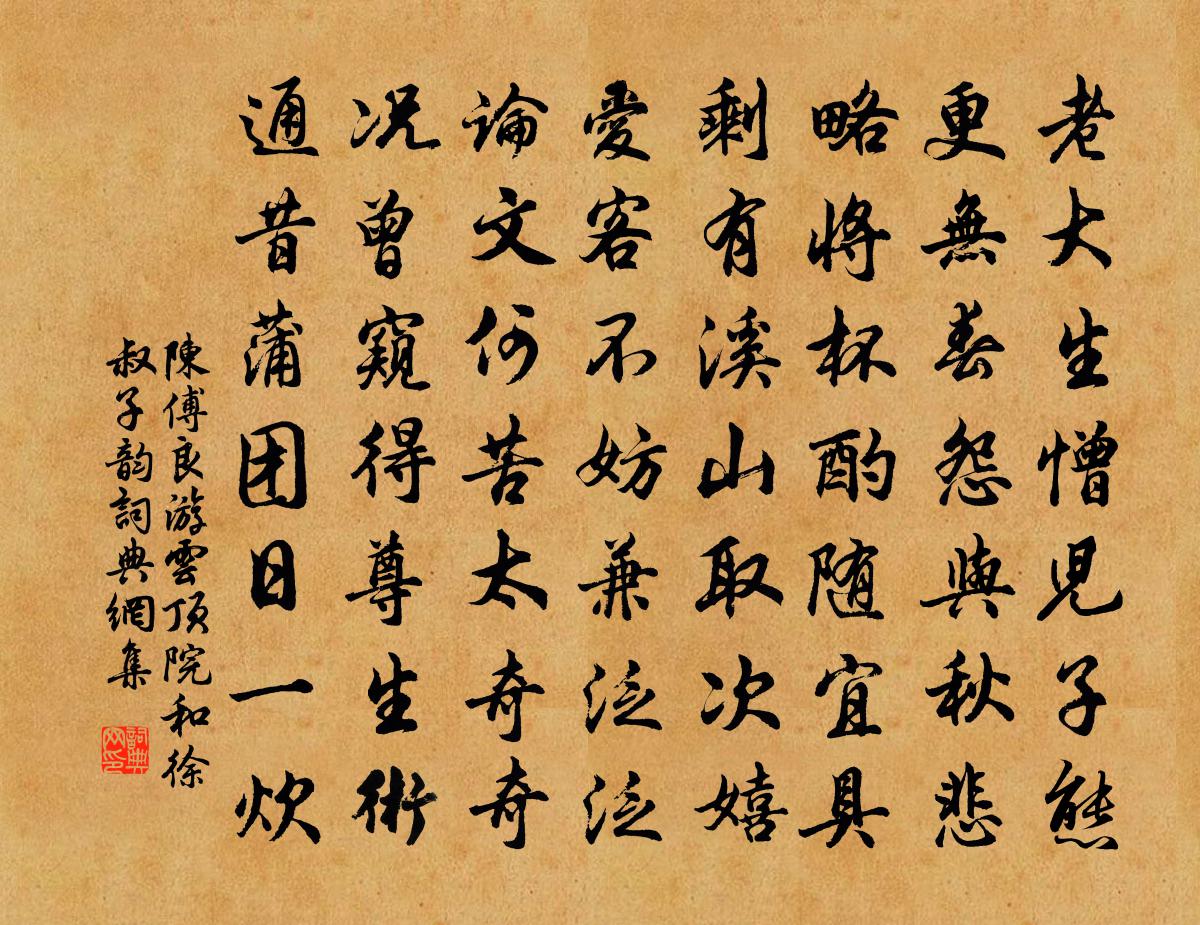 老大生憎児子態
更無春怨與秋悲
略將杯酌随宜具
剩有溪山取次嬉
愛客不妨兼泛泛
論文何苦太奇奇
况曾窺得尊生術
通昔蒲团日一炊
陳傅良游雲頂院和徐
叔子韵詞典網集
詞典网印